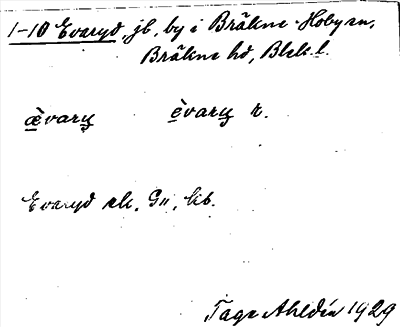 1-10 Evaryd, jb, by i Bräkne-Hoby sn,
Bräkne hd, Blek. l.
æ̀vary è̱vary R.
Evaryd sk, Gu, lib.
Tage Ahldén 1929